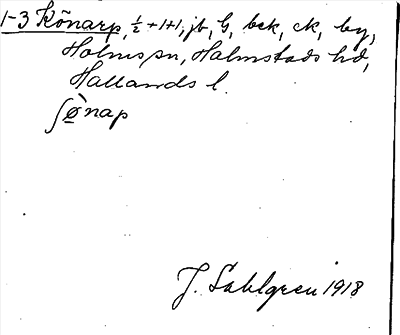 1-3 Kõnarp, ½+1+1, jb, G, bck, ck, by,
Holms sn, Halmstads hd,
Hallands l.
ʃø̀nap
J. Sahlgren 1918